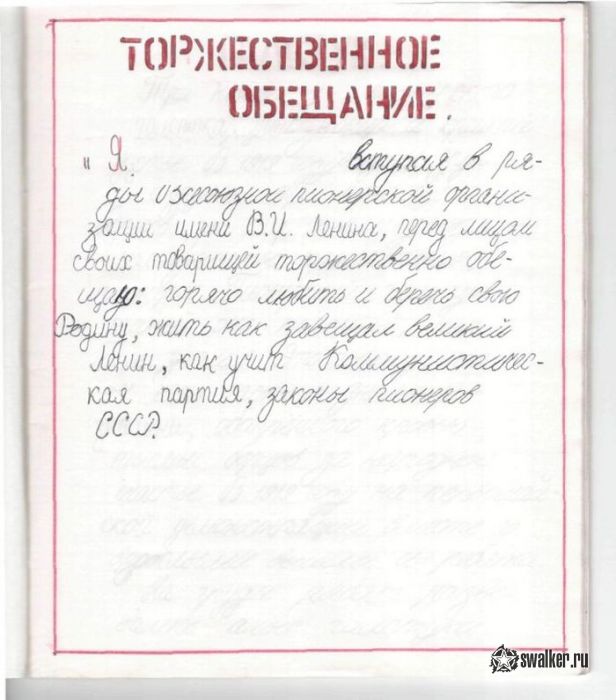 ТОРЖЕСТВЕННОЕ
ОБЕЩАНИЕ.
" Я, вступая в ря-
ды Всесоюзной пионерской органи-
зации имени В.И. Ленина, перед лицом
своих товарищей торжественно обе-
щаю: горячо любить и беречь свою
Родину, жить как завещал великий
Ленин, как учит Коммунистичес-
кая партия, законы пионеров
СССР.
swalker.ru